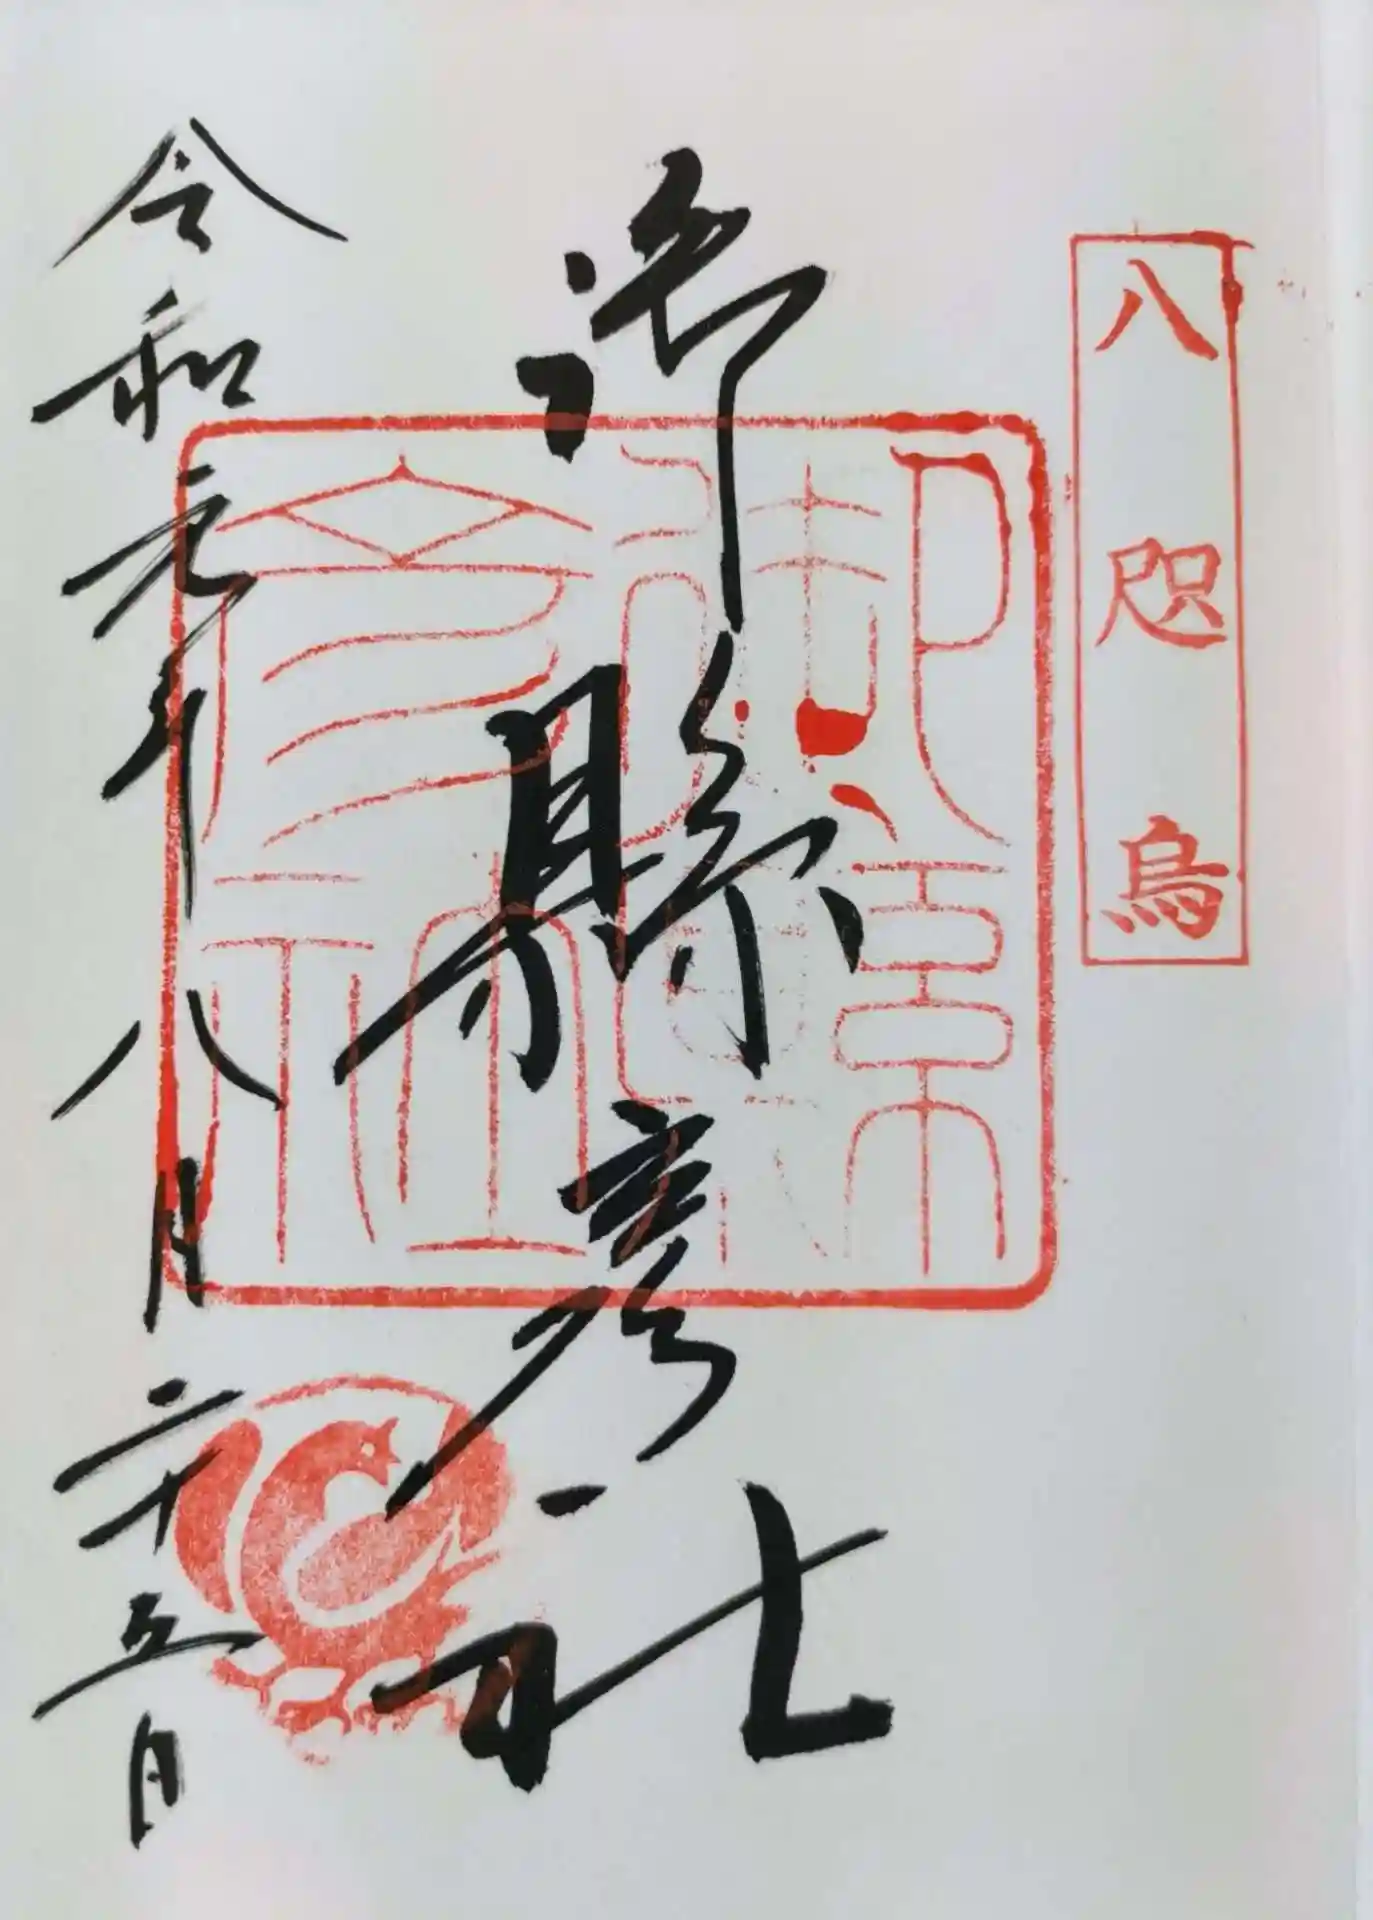 八咫烏
御縣彦社
御縣彦社
令和元年八月二十五日